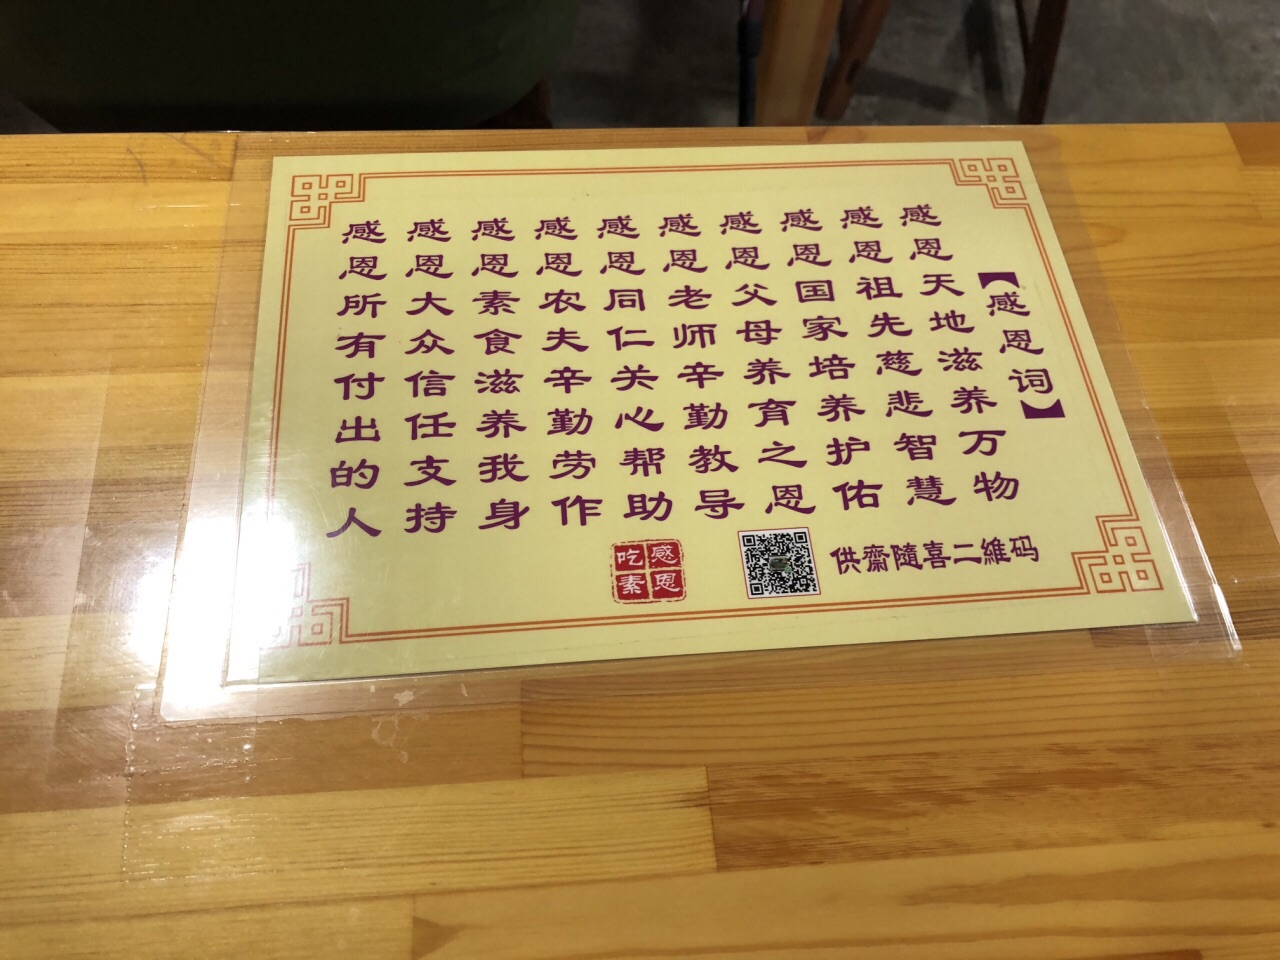 【感恩词】
感恩天地滋养万物
感恩祖先慈悲智慧
感恩国家培养护佑
感恩父母养育之恩
感恩老师辛勤教导
感恩同仁关心帮助
感恩农夫辛勤劳作
感恩素食滋养我身
感恩大众信任支持
感恩所有付出的人
供齋隨喜二維码
感恩
吃素